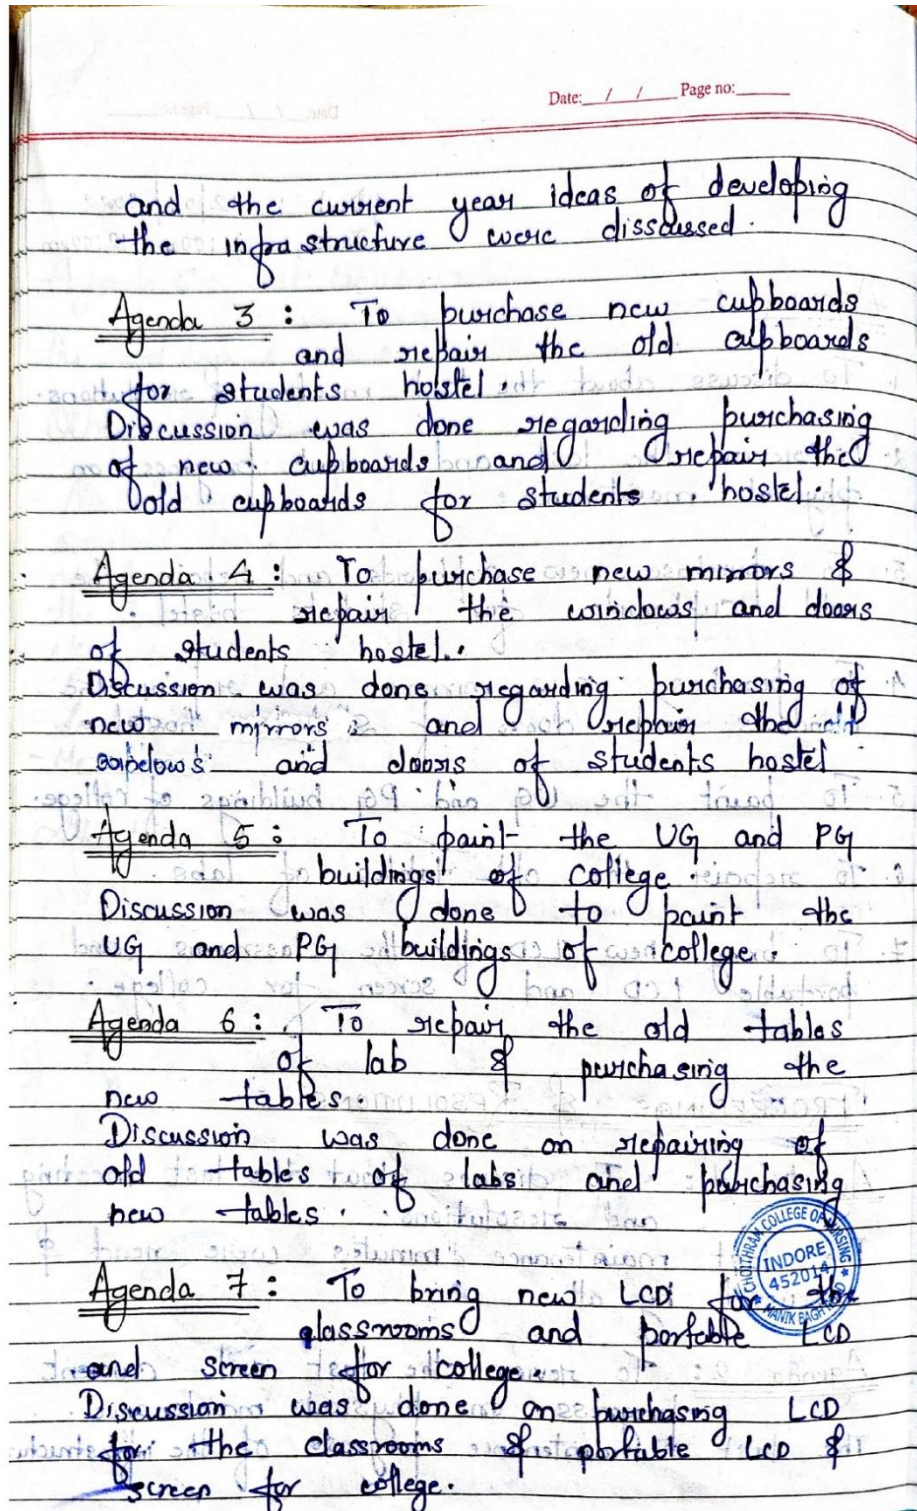 Date: / / Page no:
and the current year ideas of developing
the infrastructure were disscussed.
Agenda 3 : To purchase new cupboards
and repair the old cupboards
for students hostel.
Discussion was done regarding purchasing
of new cupboards and repair the
old cupboards for students hostel.
Agenda 4 : To purchase new mirrors &
repair the windows and doors
of students hostel.
Discussion was done regarding purchasing of
new mirrors and repair the
and doors of students hostel
Agenda 5 : To paint the UG and PG
buildings of college.
Discussion was done to paint the
UG and PG buildings of college.
Agenda 6 : To repair the old tables
of lab & purchasing the
new tables.
Discussion was done on repairing of
old tables of labs and purchasing
new tables.
CHOITHRAM COLLEGE OF NURSING
INDORE
452014
MANIK BAGH ROAD
Agenda 7 : To bring new LCD for the
classrooms and portable LCD
and screen for college.
Discussion was done on purchasing LCD
for the classrooms & portable LCD &
screen for college.